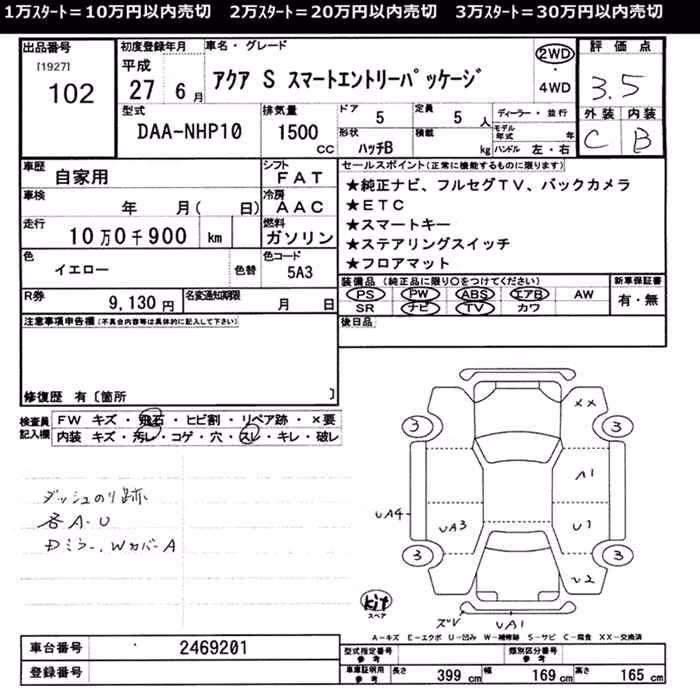 1万ｽﾀｰﾄ＝10万円以内売切　2万ｽﾀｰﾄ＝20万円以内売切　3万ｽﾀｰﾄ＝30万円以内売切
出品番号
[1927]
102
初度登録年月
平成
27 6月
車名・グレード
アクア S スマートエントリーパッケージ
2WD
・
4WD
評価点
3.5
外装 内装
C B
型式
DAA-NHP10
排気量
1500 cc
ドア
5
定員
5 人
形状
ハッチB
積載
kg
ディーラー・並行
モデル年式 年
ハンドル 左・右
車歴
自家用
シフト
FAT
車検
年 月( 日)
冷房
AAC
走行
10万0千900 km
燃料
ガソリン
色
イエロー
色替
色コード
5A3
R券
9,130円
名変通知期限
月 日
セールスポイント(正常に機能するものに限ります)
★純正ナビ、フルセグTV、バックカメラ
★ETC
★スマートキー
★ステアリングスイッチ
★フロアマット
装備品(純正品に限り○をつけてください)
PS PW ABS エアB AW
SR ナビ TV カワ
新車保証書
有・無
後日品
注意事項申告欄(不具合内容等は具体的に記入して下さい)
修復歴 有〔箇所 〕
検査員記入欄
FW キズ・飛石・ヒビ割・リペア跡・×要
内装 キズ・汚レ・コゲ・穴・スレ・キレ・破レ
ダッシュのり跡
各A・U
Dミラー、WカバーA
XX
3 3
A1
UA4
UA3
U1
3 3
U2
ズV
UA1
kit
スペア
A－キズ E－エクボ U－凹み W－補修跡 S－サビ C－腐食 XX－交換済
車台番号
2469201
登録番号
型式指定番号
参考
類別区分番号
参考
車庫証明用
参考
長さ 399 cm 幅 169 cm 高さ 165 cm